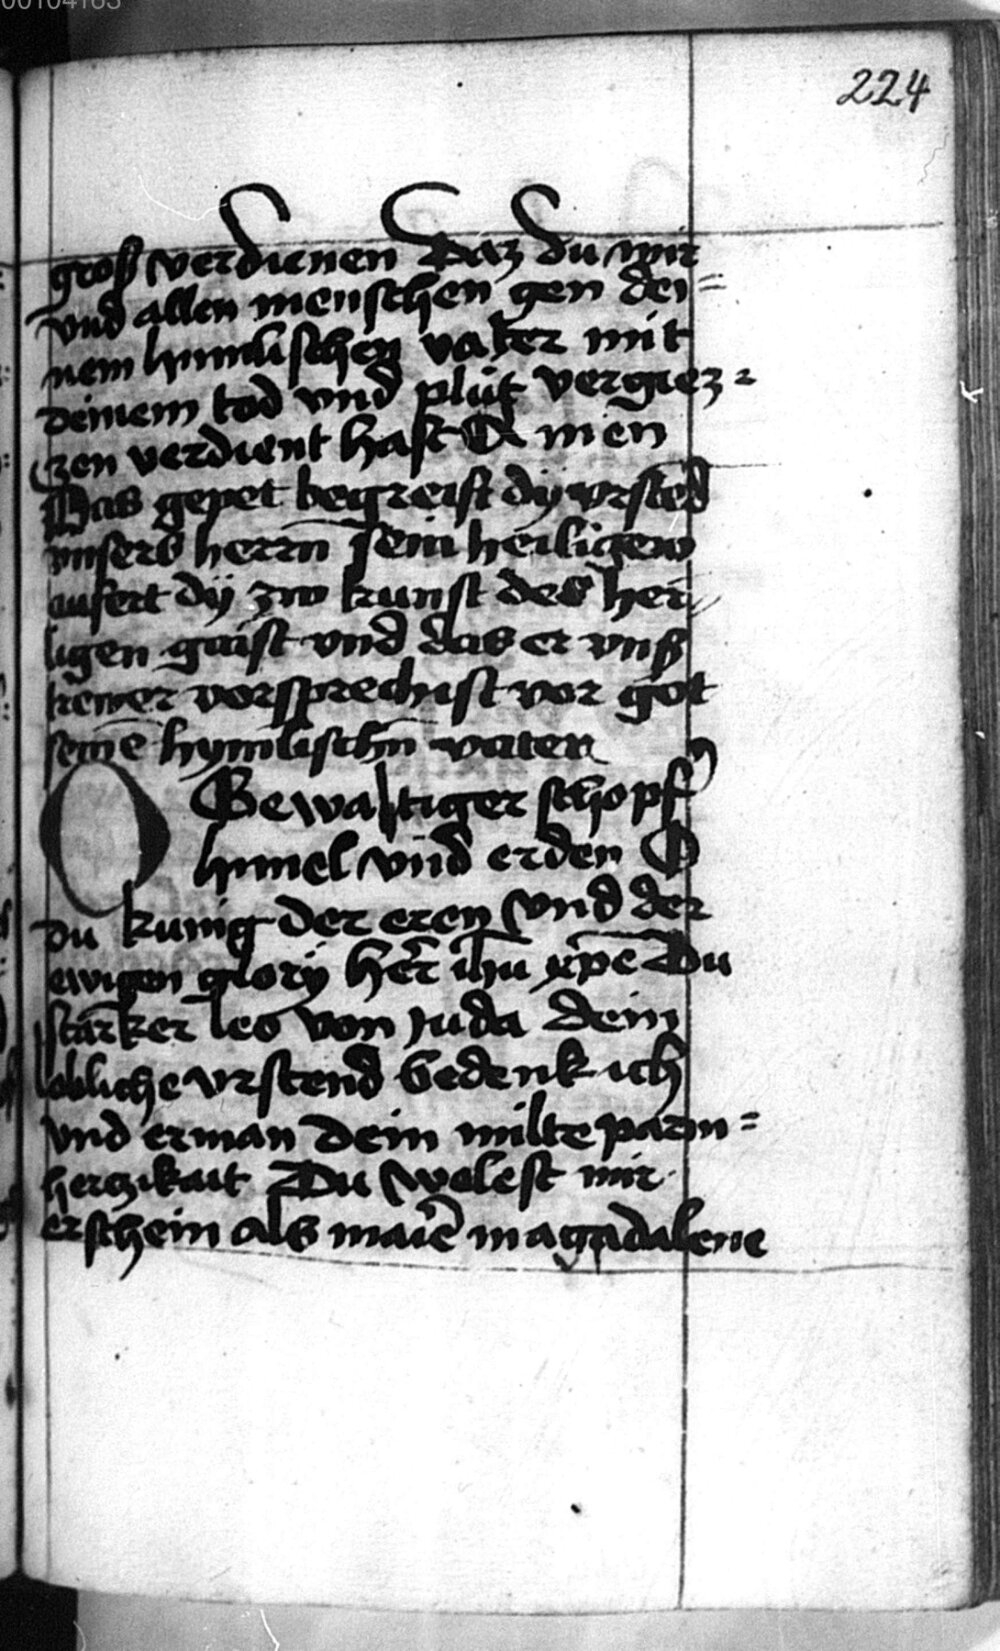 00104165
224
groß verdienen Daz du mir
vnd allen menschen gen dei=
nem himlischen vater mit
deinem tod vnd plůt vergiez=
zen verdient hast Amen
Das gepet begreift dy vrstend
vnsers herrn sein heiligew
aufert dy zw kunst des hei
ligen gaist vnd das er vnß
trewer vorsprech ist vor got
seinē hymlischn̄ vater
O Gewaltiger schopf
himel vnd erden O
du kunig der eren vnd der
ewigen glory her̄ ihū xp̄e Du
starker leo von Juda dein
lobliche vrstend bedenk ich
vnd erman dein milte parm=
herczikait Du welest mir
erschein als mariē magadalene